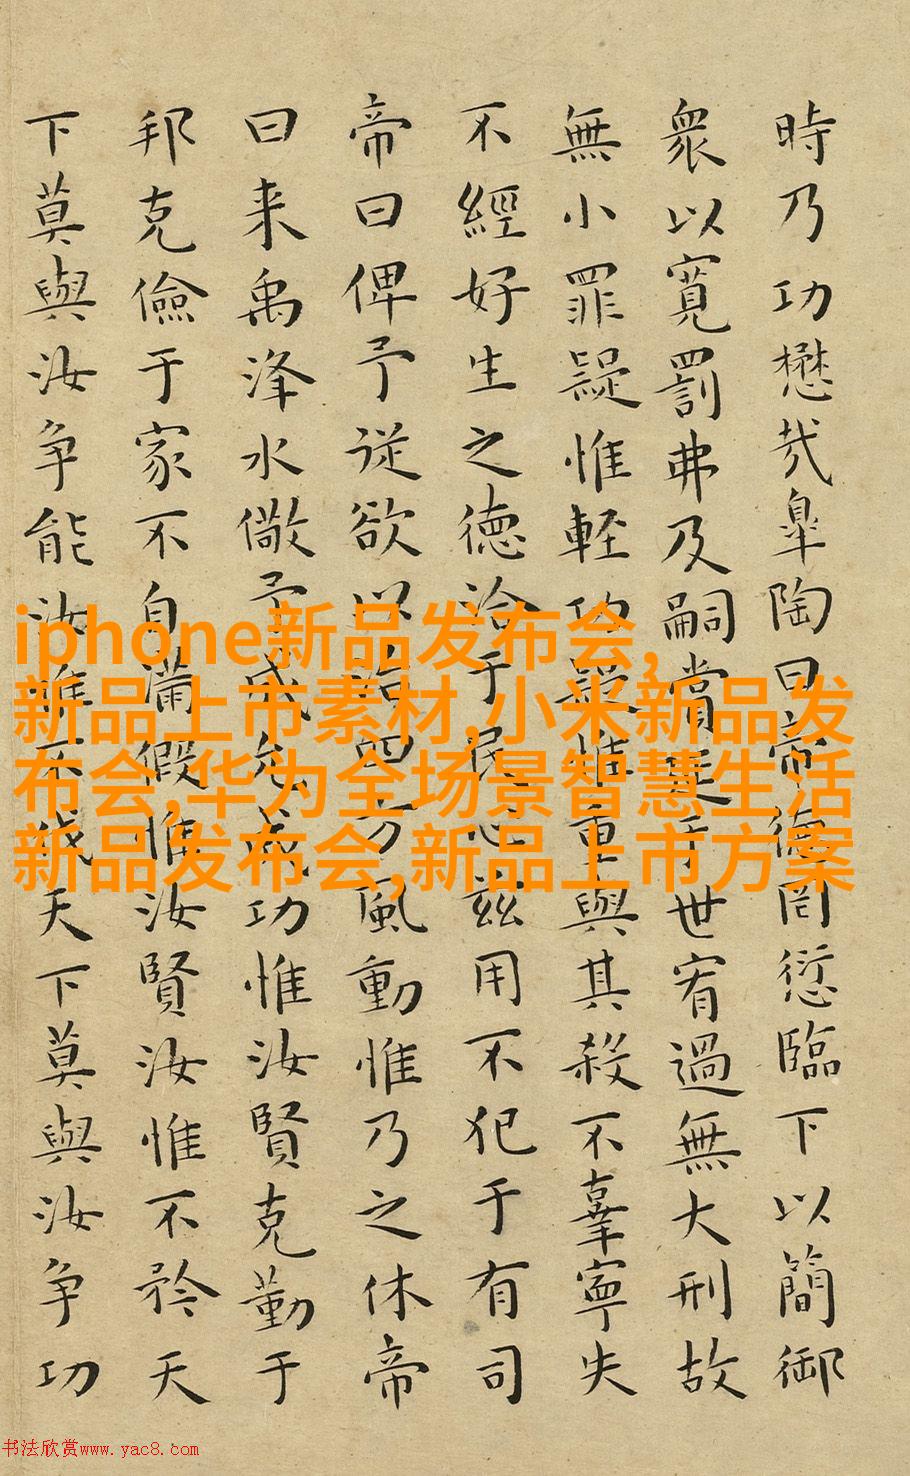 時乃功懋哉皐陶曰帝德罔愆臨下以簡御
衆以寛罰弗及嗣賞延于世宥過無大刑故
無小罪疑惟軽功疑惟重與其殺不辜寧失
不經好生之德洽于民心兹用不犯于有司
帝曰俾予従欲以治四方風動惟乃之休帝
曰来禹洚水儆予成允成功惟汝賢克勤于
邦克儉于家不自滿假惟汝賢汝惟不矜天
下莫與汝争能汝惟不伐天下莫與汝争功
iphone新品发布会,
新品上市素材,小米新品发
布会,华为全场景智慧生活
新品发布会,新品上市方案
书法欣赏www.yac8.com